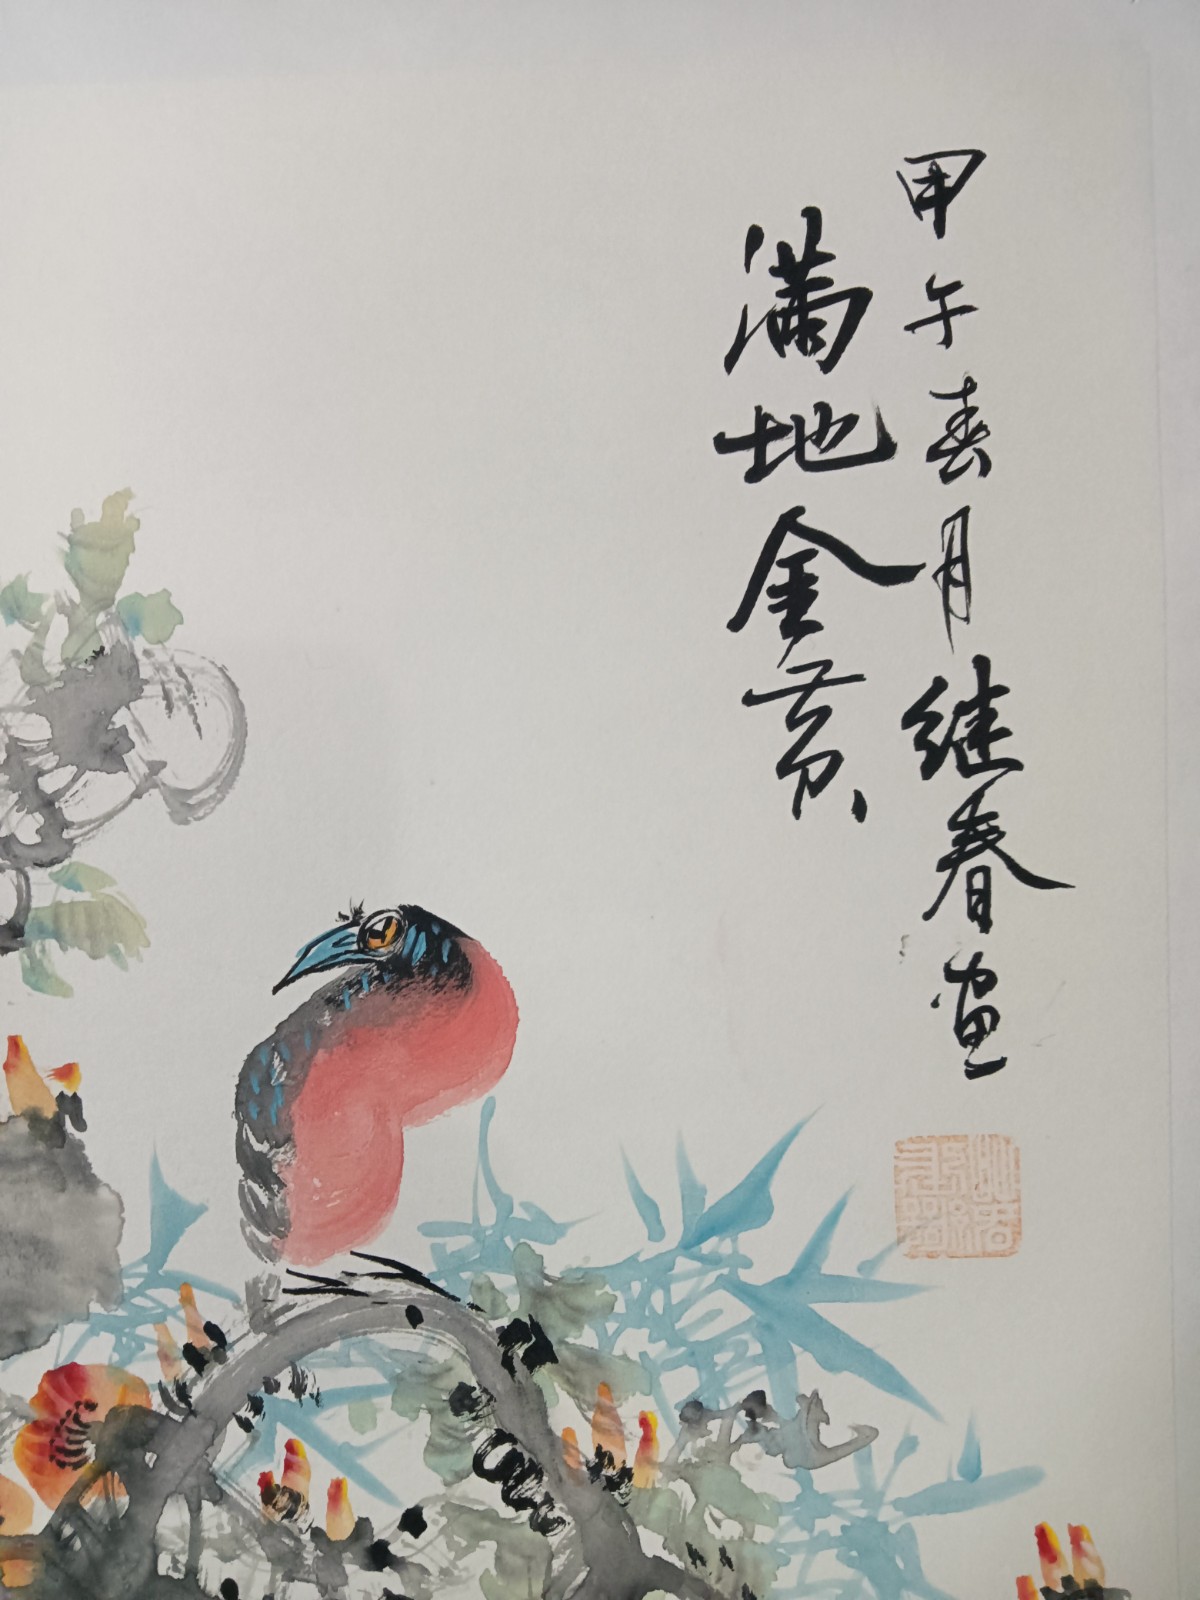 满地金黄
甲午春月继春画